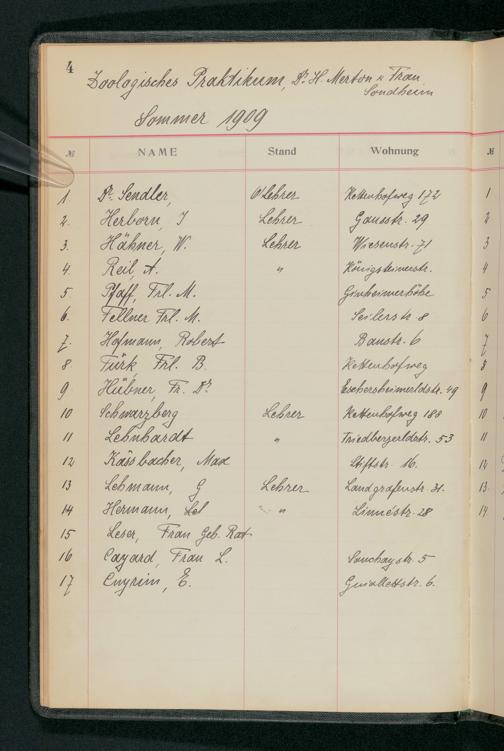 4
Zoologisches Praktikum, Dr. H. Merton u. Frau
Sondheim
Sommer 1909
№ NAME Stand Wohnung №
1. Dr. Sendler, O'Lehrer Kettenhofweg 172 1
2. Herborn, J Lehrer Gaussstr. 29 2
3. Hähner, W. Lehrer Wiesenstr. 71 3
4. Reil, A. " Königsteinerstr. 4
5. Pfaff, Frl. M. Ginheimerhöhe 5
6. Fellner Frl. M. Seilerstr 8 6
7. Hofmann, Robert Baustr. 6 7
8. Türk, Frl. B. Kettenhofweg 8
9. Hübner, Fr. Dr. Eschersheimerldstr. 49 9
10 Schwarzberg Lehrer Kettenhofweg 188 10
11 Lehnhardt " Friedbergerldstr. 53 11
12 Kässbacher, Max Stiftstr. 16. 12
13 Lehmann, G Lehrer Landgrafenstr. 31. 13
14 Hermann, " Linnéstr. 28 14
15 Leser, Frau Geh. Rat
16 Cayard, Frau L. Souchaystr. 5
17 Cnyrim, E. Guiollettstr. 6.